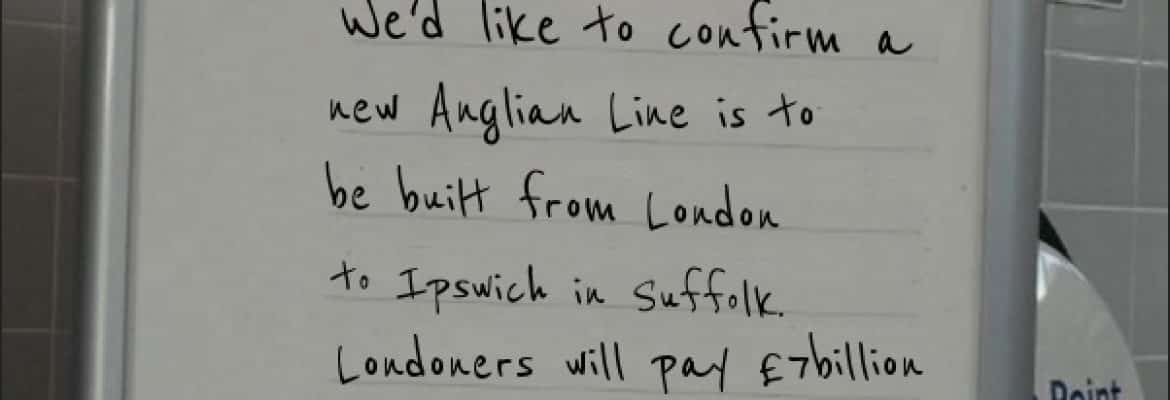 We'd like to confirm a
new Anglian Line is to
be built from London
to Ipswich in Suffolk.
Londoners will pay £7billion
Point